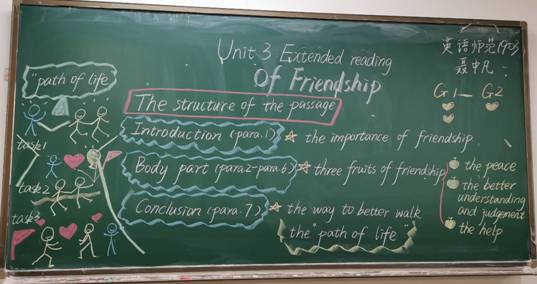 Unit 3 Extended reading
Of Friendship
英语师范(中外)
聂中凡
"path of life"
G1 — G2
The structure of the passage
Introduction (para.1) the importance of friendship
task1
Body part (para2-para.6) three fruits of friendship
the peace
the better
understanding
and judgement
the help
task2
task3
Conclusion (para.7) the way to better walk
the "path of life"